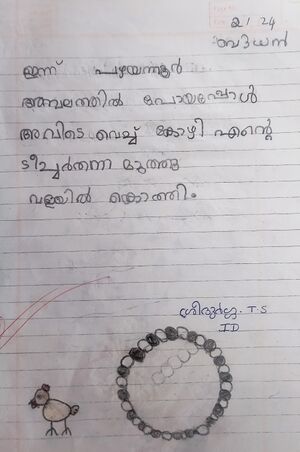 2/1/24
ബുധൻ
ഇന്ന് പഴയന്നൂർ
അമ്പലത്തിൽ പോയപ്പോൾ
അവിടെ വെച്ച് കോഴി എന്റെ
ടീച്ചർതന്ന മുത്തു
വളയിൽ കൊത്തി.
ശ്രീദുർഗ്ഗ. T.S
I D